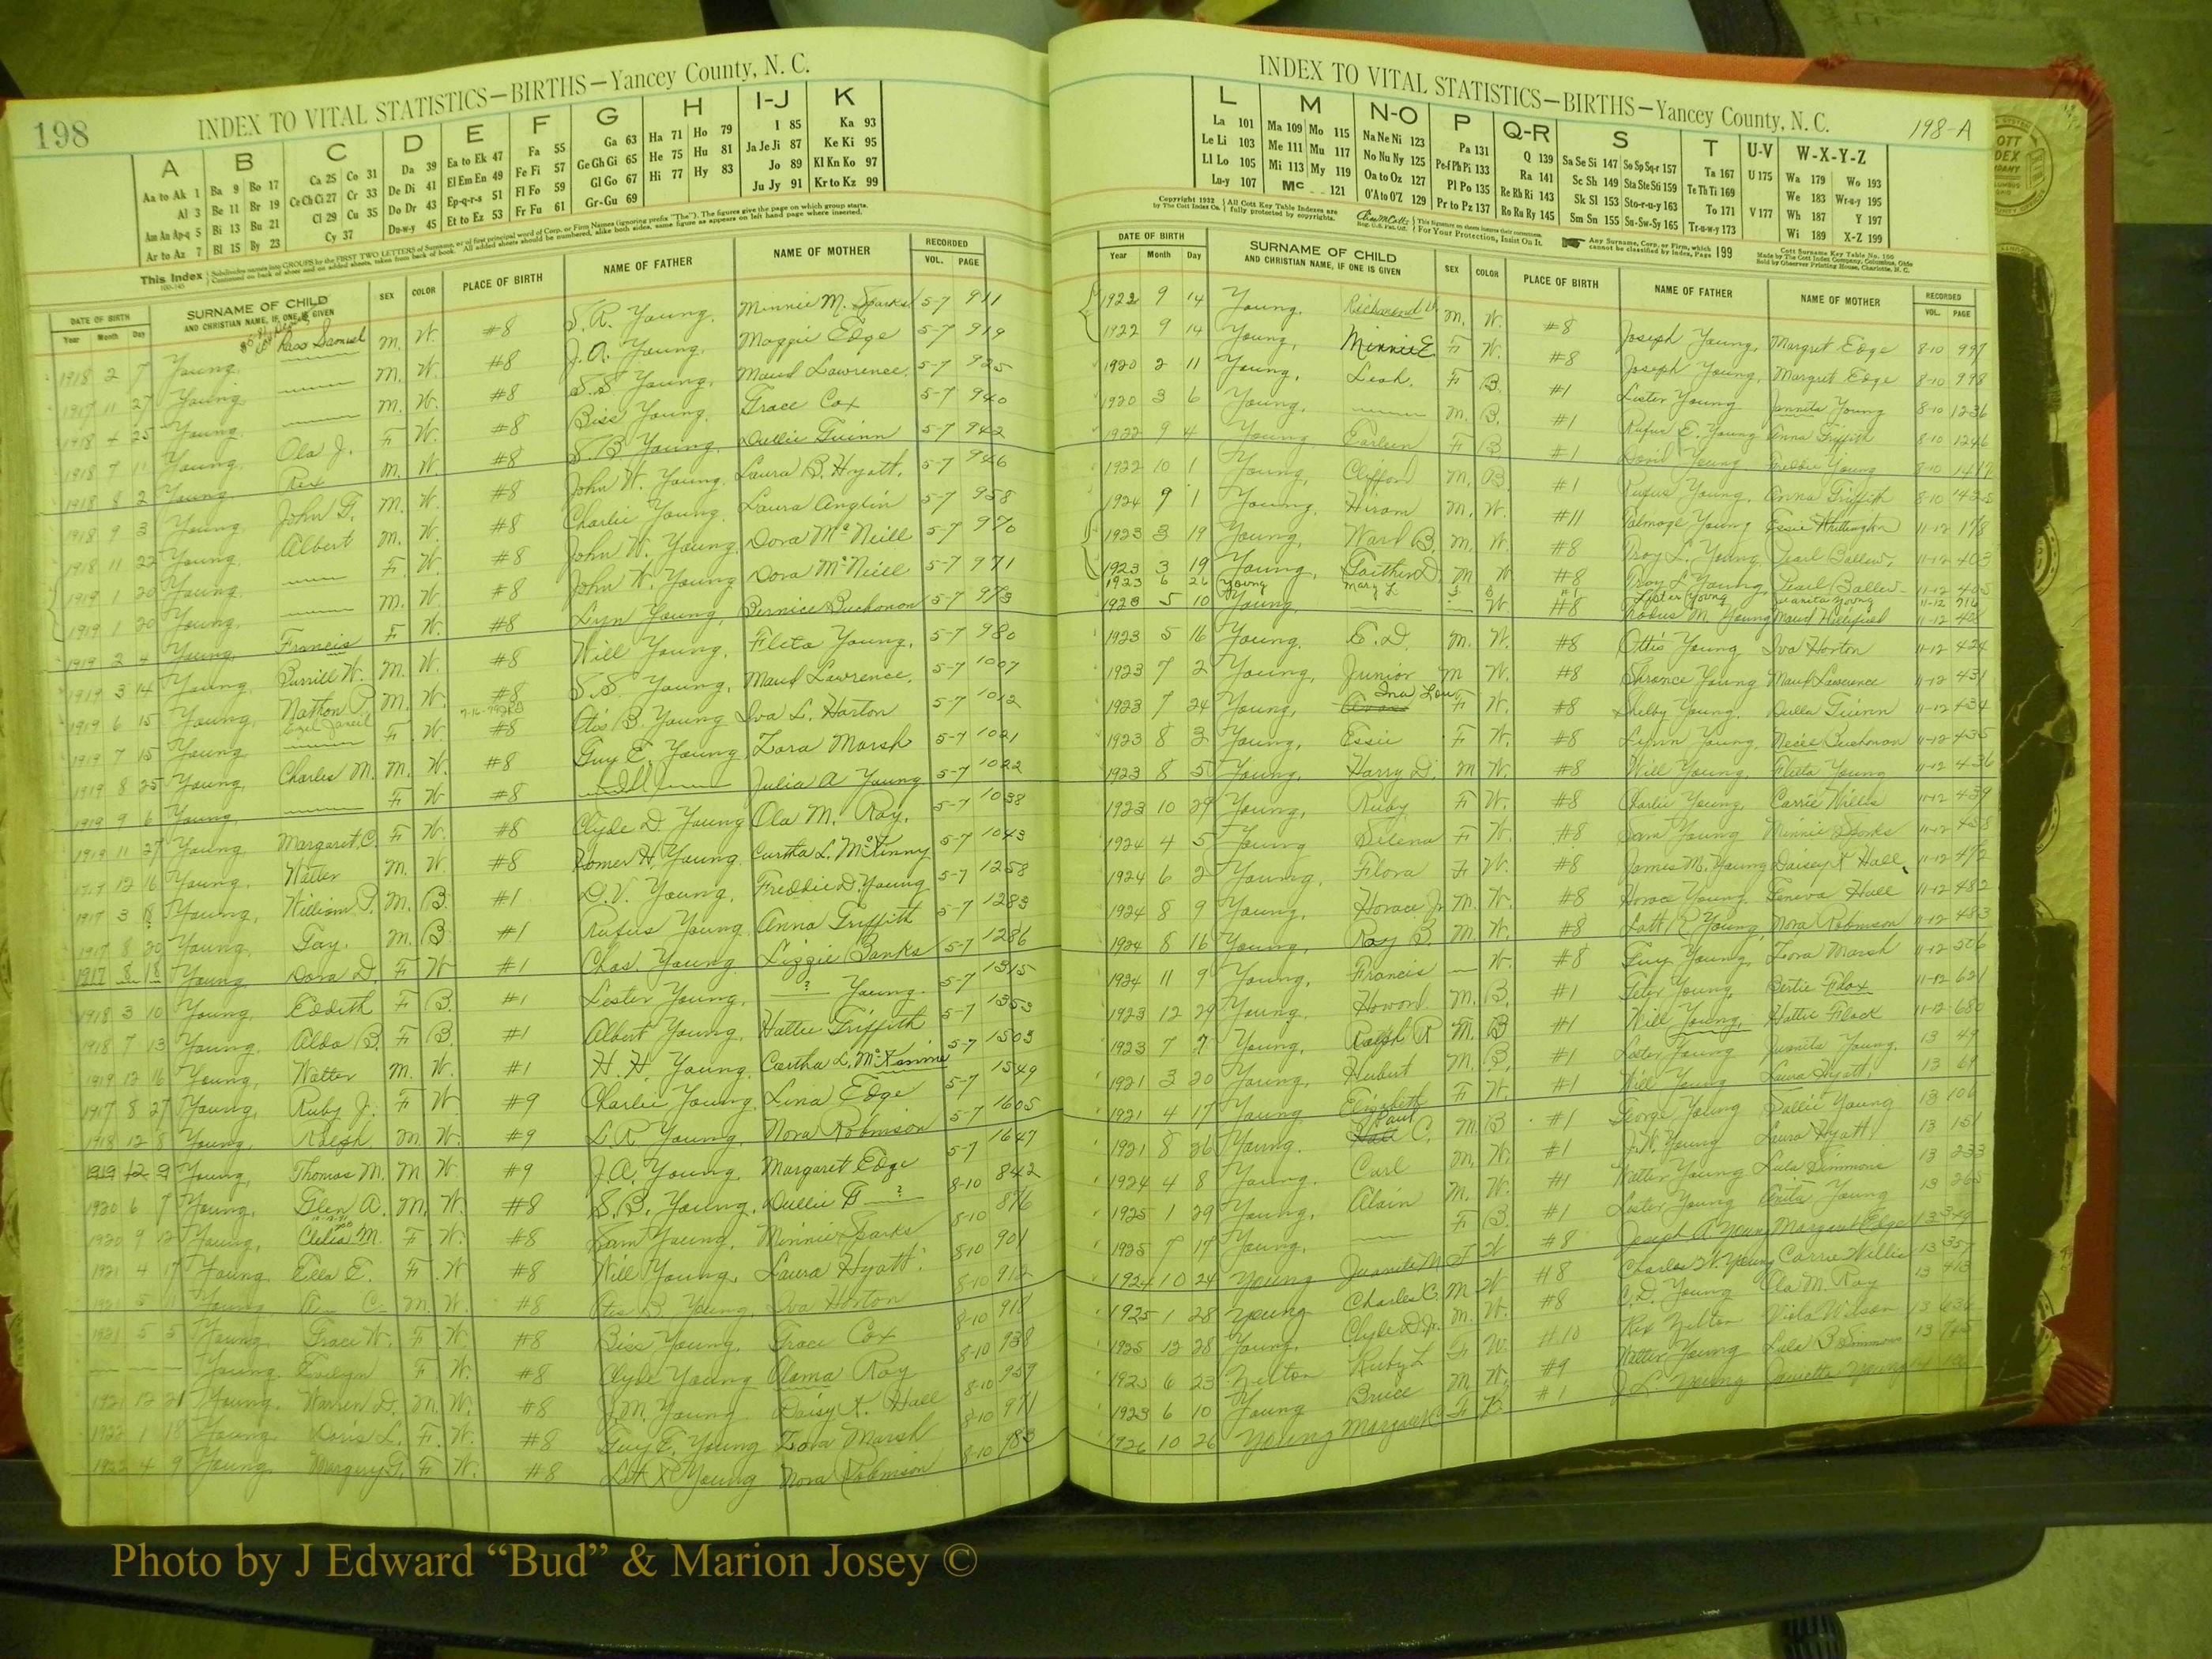 198
INDEX TO VITAL STATISTICS—BIRTHS—Yancey County, N. C.
A B C D E F G H I-J K
Aa to Ak 1 Ba 9 Bo 17 Ca 25 Co 31 Da 39 Ea to Ek 47 Fa 55 Ga 63 Ha 71 Ho 79 I 85 Ka 93
Al 3 Be 11 Br 19 Ce Ch Ci 27 Cr 33 De Di 41 El Em En 49 Fe Fi 57 Ge Gh Gi 65 He 75 Hu 81 Ja Je Ji 87 Ke Ki 95
Am An Ap-q 5 Bi 13 Bu 21 Cl 29 Cu 35 Do Dr 43 Ep-q-r-s 51 Fl Fo 59 Gl Go 67 Hi 77 Hy 83 Jo 89 Kl Kn Ko 97
Ar to Az 7 Bl 15 By 23 Cy 37 Du-w-y 45 Et to Ez 53 Fr Fu 61 Gr-Gu 69 Ju Jy 91 Kr to Kz 99
This Index
DATE OF BIRTH SURNAME OF CHILD AND CHRISTIAN NAME, IF ONE IS GIVEN SEX COLOR PLACE OF BIRTH NAME OF FATHER NAME OF MOTHER RECORDED
Year Month Day VOL. PAGE
1918 2 7 Young Samuel M. W. #8 S. R. Young. Minnie M. Sparks 5-7 911
1917 11 27 Young M. W. #8 J. A. Young. Maggie Edge 5-7 919
1918 4 25 Young. M. W. #8 S. S. Young. Maud Lawrence. 5-7 925
1918 7 11 Young. Ola J. F. W. #8 Biss Young. Grace Cox 5-7 940
1918 8 2 Young. Rex M. W. #8 S. B. Young. Dullie Guinn 5-7 942
1918 9 3 Young. John G. M. W. #8 John W. Young. Laura B. Hyatt. 5-7 946
1918 11 22 Young. Albert M. W. #8 Charlie Young. Laura Anglin 5-7 958
1919 1 20 Young. F. W. #8 John W. Young. Dora McNeill 5-7 970
1919 1 20 Young. M. W. #8 John W. Young Dora McNeill 5-7 971
1919 2 4 Young. Francis F. W. #8 Lyn Young, Bernice Buchonon 5-7 973
1919 3 14 Young. Burrill W. M. W. #8 Will Young, Fleta Young, 5-7 980
1919 6 15 Young. Nathan P. M. W. #8 S. S. Young, Maud Lawrence, 5-7 1007
1919 7 15 Young F. W. #8 Otis B. Young Iva L. Horton 5-7 1012
1919 8 25 Young, Charles M. M. W. #8 Guy E. Young, Zora Marsh 5-7 1021
1919 9 6 Young. F. W #8 Julia A Young 5-7 1022
1919 11 27 Young, Margaret C. F. W. #8 Clyde D. Young Ola M. Ray. 5-7 1038
12 16 Young. Walter M. W. #8 Homer H. Young. Curtha L. McKinny 5-7 1043
1917 3 Young, William P. M. B. #1 D. V. Young. Freddie D. Young 5-7 1258
1917 8 20 Young. Gay. M. B. #1 Rufus Young. Anna Griffith 5-7 1283
1917 8 18 Young Dora D. F. W #1 Chas. Young. Lizzie Banks 5-7 1286
1918 3 10 Young. Eddith F B. #1 Lester Young. ? Young. 5-7 1315
1918 7 13 Young. Alda B. F. B. #1 Albert Young. Hattie Griffith 5-7 1353
1919 12 16 Young, Walter M. W. #1 H. H. Young. Curtha L. McKinnie 5-7 1503
1917 8 27 Young, Ruby J. F. W #9 Charlie Young. Lina Edge 5-7 1549
1918 12 8 Young. Ralph M. W. #9 L. R. Young. Nora Robinson 5-7 1605
1919 12 9 Young. Thomas M. M W. #9 J. A. Young. Margaret Edge 5-7 1647
1920 6 7 Young. Glen A. M. W. #8 S. B. Young. Dullie G ? 8-10 842
1920 9 12 Young, M. F. W. #8 Sam Young. Minnie Sparks 8-10 876
1921 4 17 Young. Ella E. F. W #8 Will Young. Laura Hyatt. 8-10 901
1921 5 Young M. W. #8 Otis B. Young Iva Horton 8-10 912
1921 5 5 Young. Grace W. F. W. #8 Biss Young. Grace Cox 8-10 918
Young. Evelyn F W. #8 Clyde Young Olama Ray 8-10 938
1921 12 21 Young. Warren D. M. W. #8 J. M. Young Daisy K. Hall 8-10 959
1922 1 18 Young Doris L. F. W. #8 Guy E. Young Zora Marsh 8-10 971
1922 4 9 Young. Margery F. W. #8 Lott R Young Nora Robinson 8-10 983
INDEX TO VITAL STATISTICS—BIRTHS—Yancey County, N. C.
198-A
L M N-O P Q-R S T U-V W-X-Y-Z
La 101 Ma 109 Mo 115 Na Ne Ni 123 Pa 131 Q 139 Sa Se Si 147 So Sp Sq-r 157 Ta 167 U 175 Wa 179 Wo 193
Le Li 103 Me 111 Mu 117 No Nu Ny 125 Pe-f Ph Pi 133 Ra 141 Sc Sh 149 Sta Ste Sti 159 Te Th Ti 169 We 183 Wr-u-y 195
Ll Lo 105 Mi 113 My 119 Oa to Oz 127 Pl Po 135 Re Rh Ri 143 Sk Sl 153 Sto-r-u-y 163 To 171 V 177 Wh 187 Y 197
Lu-y 107 Mc 121 O'A to O'Z 129 Pr to Pz 137 Ro Ru Ry 145 Sm Sn 155 Su-Sw-Sy 165 Tr-u-w-y 173 Wi 189 X-Z 199
Copyright 1932 by The Cott Index Co. All Cott Key Table Indexes are fully protected by copyrights. For Your Protection, Insist On It. Any Surname, Corp. or Firm, which cannot be classified by Index, Page 199
Cott Surname Key Table No. 100 Made by The Cott Index Company, Columbus, Ohio Sold by Observer Printing House, Charlotte, N. C.
DATE OF BIRTH SURNAME OF CHILD AND CHRISTIAN NAME, IF ONE IS GIVEN SEX COLOR PLACE OF BIRTH NAME OF FATHER NAME OF MOTHER RECORDED
Year Month Day VOL. PAGE
1922 9 14 Young. M. W. #8 Joseph Young, Margret Edge 8-10 997
1922 9 14 Young, Minnie E F W. #8 Joseph Young, Margret Edge 8-10 998
1920 2 11 Young, Leah. F B. #1 Lester Young Young 8-10 1236
1920 3 6 Young, M. B. #1 Rufus E. Young Anna Griffith 8-10 1246
1922 9 4 Young Earleen F B #1 David Young Freddie Young 8-10
1922 10 1 Young, Clifford M. B. #1 Rufus Young. Anna Griffith 8-10
1924 9 1 Young. Hiram M. W. #11 Talmage Young Essie Whittington 11-12 178
1923 3 19 Young, Ward B. M. W. #8 Roy L. Young Pearl Ballew, 11-12 403
1923 3 19 Young, M W #8 Roy L Young, Pearl Ballew 11-12
1923 6 26 Young Mary L Lester Young Juanita Young 11-12
1923 5 10 Young. W. #8 Young Maud 11-12
1923 5 16 Young. E. D. M. W. #8 Ottis Young Iva Horton 11-12 424
1923 7 2 Young, Junior M W. #8 Young Maud Lawrence 11-12 431
1923 7 24 Young, Ina Lou F W. #8 Shelby Young. Dulla Guinn 11-12 434
1923 8 3 Young, Essie F W. #8 Lynn Young. Buchanan 11-12 435
1923 8 5 Young, Harry D. M W. #8 Will Young, Fleeta Young 11-12 436
1923 10 29 Young, Ruby. F W. #8 Charlie Young, Carrie Willis 11-12 439
1924 4 5 Young Selena F W. #8 Sam Young Minnie Sparks 11-12 458
1924 6 2 Young, Flora F. W. #8 James M. Young Daisey K Hall 11-12 472
1924 8 9 Young, Horace Jr. M. W. #8 Horace Young. Geneva Hall 11-12 482
1924 8 16 Young, Ray B. M. W. #8 Lott R Young, Nora Robinson 11-12 483
1924 11 9 Young, Francis W. #8 Guy Young, Zora Marsh 11-12 506
1923 12 29 Young. Howard. M. B. #1 Young, Bertie Flax 11-12 621
1923 7 7 Young, Ralph R M. B #1 Will Young, Hattie Flack 11-12 680
1921 3 20 Young, Hubert M. B. #1 Lester Young Juanita Young. 13 49
1921 4 17 Young Elizabeth F. W. #1 Will Young Laura Hyatt. 13 69
1921 8 26 Young. Paul C. M. B #1 George Young Sallie Young 13 106
1924 4 8 Young. Carl M. W. #1 J. W. Young Laura Hyatt. 13 151
1925 1 29 Young, Alvin M. W. #1 Walter Young Lula Simmons 13 233
1925 7 17 Young, F B. #1 Lester Young Anita Young 13 265
1924 10 24 Young Juanita M F W #8 Joseph A Young Margaret Edge 13
1925 1 28 Young Charles C. M W #8 Charles W. Young Carrie Willis 13 357
1925 12 28 Young. Clyde D. Jr. M. W. #8 C. D. Young Ola M. Ray 13 413
1925 6 23 Zelton Ruby L. F W. #10 Rex Zelton Viola Wilson 13 636
1923 6 10 Young Bruce M. W. #9 Walter Young Lula B. Simmons 13 745
1926 10 26 Young Margaret F B. #1 J. L. Young Young
Photo by J Edward “Bud” & Marion Josey ©